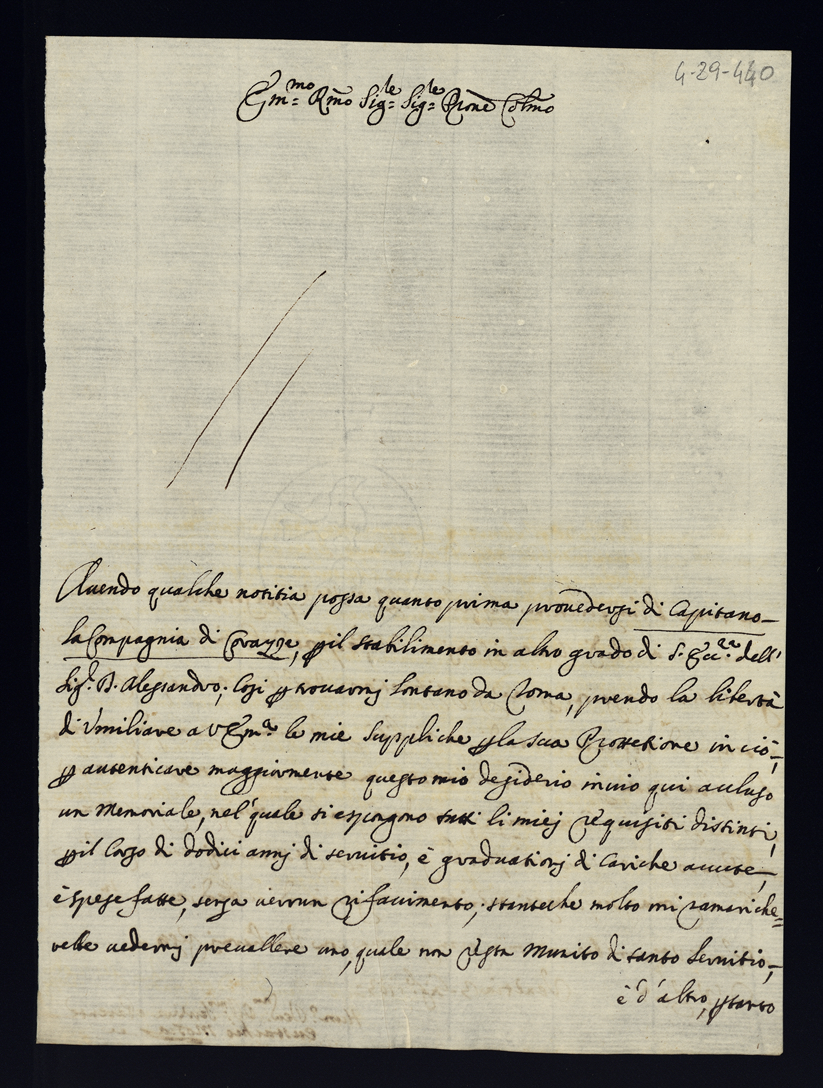 4-29-440
Em.mo Rmo Sig.le Sig.le Prone Colmo
Auendo qualche notitia possa quanto prima prouedersi di Capitano
la Compagnia di Corazze, p il stabilimento in altro grado di S. Ecc.za dell'
Sig.r D. Alessandro; Così p trouarmj lontano da Roma, prendo la libertà
di Vmiliare a VEm.a le mie Suppliche p la sua Protettione in ciò,
p autenticare maggiormente questo mio desiderio inuio qui accluso
un Memoriale, nel'quale si espongono tutti li miej requisiti distinti,
p il Corso di dodici annj di seruitio, è graduationj di Cariche auute,
è spese fatte, senza uerrun rifacimento; stanteche molto mi ramariche=
rebbe uedermj preuallere uno, quale non resta Munito di tanto Seruitio,
è d'altro, p tanto